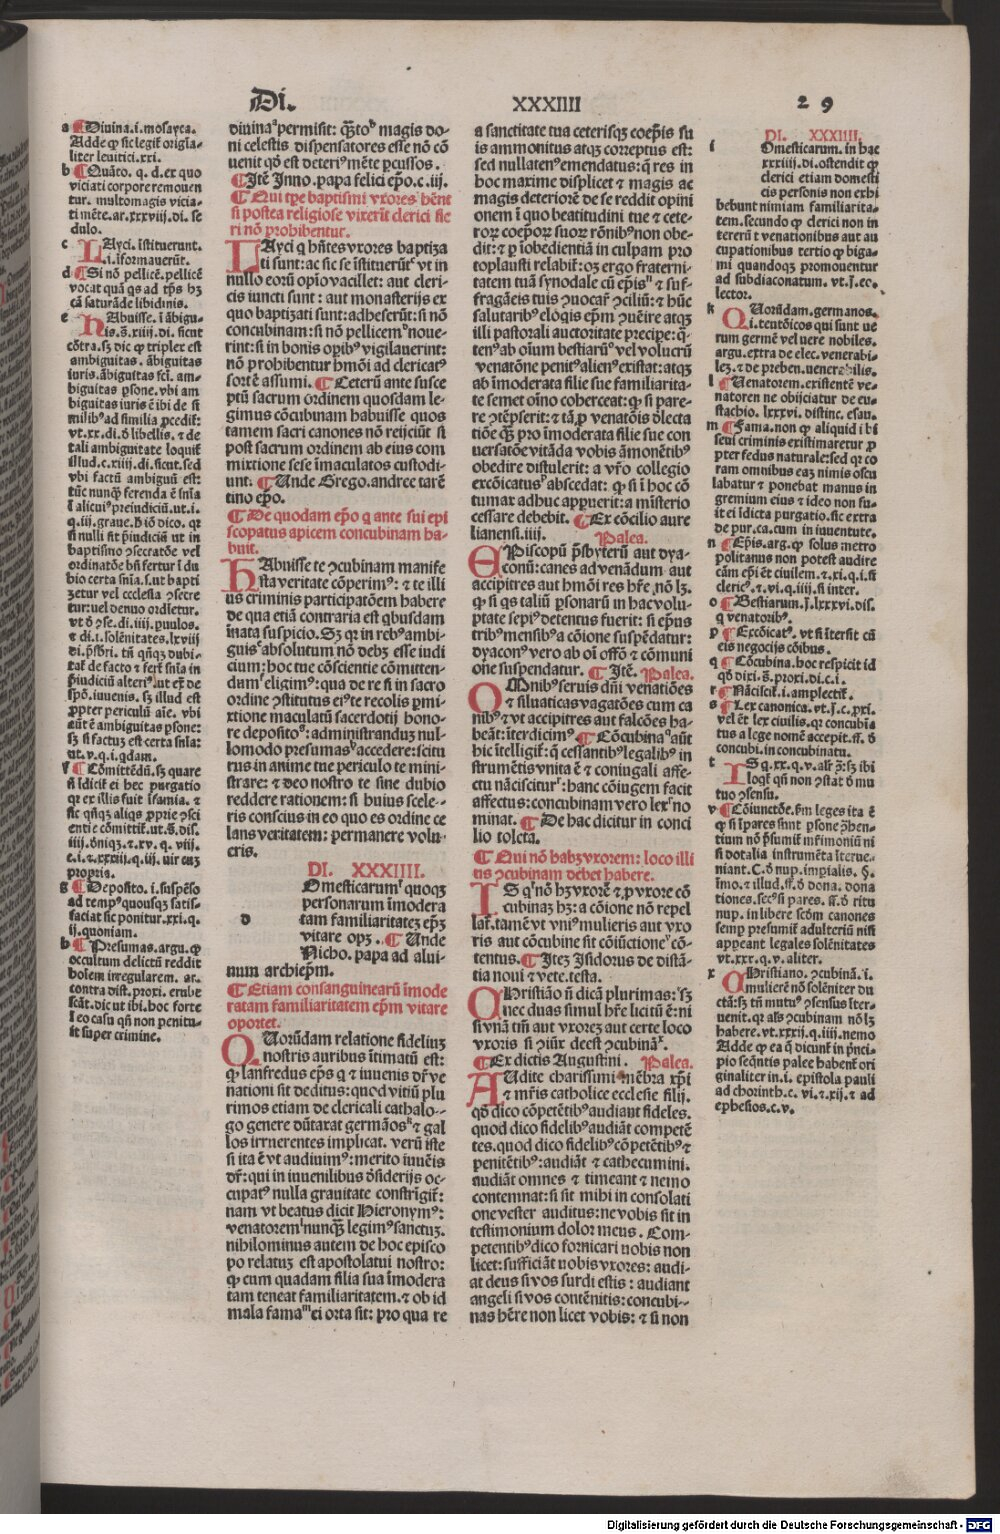 Di.
XXXIIII
29
a ¶ Diuina.i.mosayca.
Adde ꝙ sic legiť origīa-
liter leuitici.xxi.
b ¶ Quāto. q. d. ex quo
viciati corpore remouen
tur. multomagis vicia-
ti mēte.ar.xxxviij.di. se
dulo.
c Layci. īstituerunt.
i. īformauerūt.
d ¶ Si nō pellicē. pellicē
vocat quā qs ad tp̄s hꝫ
cā saturāde libidinis.
e Habuisse. ī ābigu-
is. s̄. xiiij. di. sicut
cōtra. sꝫ dic ꝙ triplex est
ambiguitas. ābiguitas
iuris. ābiguitas fcī. am-
biguitas p̱sone. vbi am
biguitas iuris ē ibi de si
milibꝰ ad similia ꝓcediť:
vt.xx.di.ð libellis. ⁊ de
tali ambiguitate loquiť
illud.c.xiiij.di.sicut.sed
vbi factū ambiguū est:
tūc nunqꝫ̄ ferenda ē sn̄ia
ī alicuiꝰ preiudiciū.ut.i.
q. iij. graue. h̄ iō dico. qꝛ
si nulli fit p̄iudiciū ut in
baptismo ꝯsecratōe vel
ordinatōe bn̄ fertur ī du
bio certa sn̄ia. s. ut bapti
ȝetur vel ecclesia ꝯsecre
tur: uel denuo ordīetur.
f ¶ Cōmittēdū. sꝫ quare
nī īdiciť ei hec purgatio
qꝛ ex illis fuit īfamia. ⁊
propria.
g ¶ Deposito. i. suspēso
ad tempꝰ quousqꝫ satis-
faciat sic ponitur.xxi.q.
ij. quoniam.
h ¶ Presumas. argu. ꝙ
occultum delictū reddit
hōlem irregularem. ar.
contra dist. proxi. erube
scāt. dic ut ibi. hoc forte
ī eo casu qn̄ non penitu-
it super crimine.
diuinaᵃ permisit: q̄ꝫtoᵇ magis do-
ni celestis dispensatores esse nō cō
uenit qð est deteriꝰ mēte p̱cussos.
¶ Itē Inno. papa felici ep̄o. c. iij.
¶ Qui tp̄e baptismi vxores hēnt
si postea religiose vixerīt clerici fie
ri nō prohibentur.
Layci q hn̄tes vxores baptiza
ti sunt: ac sic se īstituerūtᶜ vt in
nullo eorū opīo vacillet: aut cleri-
cis iuncti sunt: aut monasterijs ex
quo baptizati sunt: adheserūt: si nō
concubinam: si nō pellicemᵈ noue-
rint: si in bonis opibꝰ vigilauerint:
nō prohibentur hmōi ad clericatꝰ
sortē assumi. ¶ Ceterū ante susce
ptū sacrum ordinem quosdam le-
gimus cōcubinam habuisse quos
tamen sacri canones nō reijciūt si
post sacrum ordinem ab eius com
mixtione sese īmaculatos custodi-
unt. ¶ Unde Grego. andree tarē
tino ep̄o.
¶ De quodam ep̄o q ante sui epi
scopatus apicem concubinam ha-
buit.
Habuisse te ꝯcubinam manife
staᵉ veritate cōperimꝰ: ⁊ te illi
us criminis participatōem habere
de qua etiā contraria est qbusdam
īnata suspicio. Sꝫ qꝛ in rebꝰ ambi-
guisᵉ absolutum nō debꝫ esse iudi
cium; hoc tue cōscientie cōmitten-
dumᶠ eligimꝰ: qua de re si in sacro
ordine ꝯstitutus eiꝰ te recolis p̱mi-
xtione maculatū sacerdotij hono-
re depositoᵍ: administranduꝫ nul-
lomodo presumasʰ accedere: scitu
rus in anime tue periculo te mini-
strare: ⁊ deo nostro te sine dubio
reddere rationem: si huius scele-
ris conscius in eo quo es ordine ce
lans veritatem: permanere volu-
eris.
DI. XXXIIII.
d
Omesticarumⁱ quoqꝫ
personarum īmodera
tam familiaritateꝫ ep̄ꝫ
vitare opꝫ. ¶ Unde
Nicho. papa ad alui-
num archiep̄m.
¶ Etiam consanguinearū īmode
ratam familiaritatem ep̄m vitare
oportet.
Quorūdam relatione fideliuꝫ
nostris auribus ītimatū est:
ꝙ lanfredus ep̄s q ⁊ iuuenis dr̄ ve
nationi sit deditus: quod vitiū plu
rimos etiam de clericali cathalo-
go genere dūtaxat germāosᵏ ⁊ gal
los irruerentes implicat. verū iste
si ita ē vt audiuimꝰ: merito iuuēis
dr̄: qui in iuuenilibus ðsiderijs oc-
cupatꝰ nulla grauitate constrīgiť:
nam vt beatus dicit Hieronymꝰ:
venatoremˡ nunqꝫ̄ legimꝰ sanctuꝫ.
nihilominus autem de hoc episco
po relatuꝫ est apostolatui nostro:
ꝙ cum quadam filia sua īmodera
tam teneat familiaritatem. ⁊ ob id
mala famaᵐ ei orta sit: pro qua re
a sanctitate tua ceterisqꝫ coep̄is su
is ammonitus atqꝫ correptus est:
sed nullatenꝰ emendatus: q̄ res in
hoc maxime displicet ⁊ magis ac
magis deteriorē de se reddit opini
onem ī quo beatitudini tue ⁊ cete-
roꝝ coep̄oꝝ suoꝝ rōnibꝰ non obe-
dit: ⁊ p īobedientiā in culpam pro
toplausti relabiť: oꝫ ergo fraterni-
tatem tuā synodale cū ep̄isⁿ ⁊ suf-
fragāeis tuis ꝯuocať ꝯciliū: ⁊ hūc
salutaribꝰ elogijs ep̄m ꝯuēire atqꝫ
illi pastorali auctoritate precipe: q̄-
tenꝰ ab oīum bestiarūᵒ vel volucrū
venatōne penitꝰ alienꝰ existat: atqꝫ
ab īmoderata filie sue familiarita-
te semet oīno coherceat: ꝙ si pare-
re ꝯtēpserit: ⁊ tā p venatōis ðlecta
tiōe q̄ꝫ pro īmoderata filie sue con
uersatōe vitāda vobis āmonētibꝰ
obedire distulerit: a vr̄o collegio
excōicatusᵖ abscedat: ꝙ si ī hoc cō
tumax adhuc apparuerit: a misterio
cessare debebit. ¶ Ex cōcilio aure
lianensi. iiij. Palea.
Episcopū p̄sbyterū aut dya-
conū: canes ad venādum aut
accipitres aut hmōi res hr̄e nō lꝫ.
ꝙ si qs taliū p̱sonarū in hac volu-
ptate sepiꝰ detentus fuerit: si ep̄us
tribꝰ mensibꝰ a cōione suspēdatur:
dyaconꝰ vero ab oī offō ⁊ cōmuni
one suspendatur. ¶ Itē. Palea.
Omnibꝰ seruis dn̄i venatiōes
⁊ siluaticas vagatōes cum ca
nibꝰ ⁊ vt accipitres aut falcōes ha-
beāt: īterdicimꝰ. ¶ Cōcubina aūt
hic ītelligiť: q̄ cessantibꝰ legalibꝰ in
strumētis vnita ē ⁊ coniugali affe-
ctu nāciscituʳ: hanc cōiugem facit
affectus: concubinam vero lexˢ no
minat. ¶ De hac dicitur in conci
lio toleta.
¶ Qui nō habꝫ vxorem: loco illi
us ꝯcubinam debet habere.
IS qᵗ nō hꝫ vxorē ⁊ p vxore cō
cubinaꝫ hꝫ: a cōione nō repel
lať. tamē vt vniꝰ mulieris aut vxo
ris aut cōcubine sit cōiūctioneᵛ cō-
tentus. ¶ Iteꝫ Isidorus de distā-
tia noui ⁊ vete. testa.
Christiāo n̄ dicā plurimas: sꝫ
nec duas simul hr̄e licitū ē: ni
si vnā tm̄ aut vxoreꝫ aut certe loco
vxoris si ꝯiūx deest ꝯcubināˣ.
¶ Ex dictis Augustini. Palea.
AUdite charissimi mēbra xp̄i
⁊ mr̄is catholice ecclesie filij.
qð dico cōpetētibꝰ audiant fideles.
quod dico fidelibꝰ audiāt competē
tes. quod dico fidelibꝰ cōpetētibꝰ ⁊
penitētibꝰ: audiāt ⁊ cathecumini.
audiāt omnes ⁊ timeant ⁊ nemo
contemnat: si sit mihi in consolati
one vester auditus: ne vobis sit in
testimonium dolor meus. Com-
petentibꝰ dico fornicari uobis non
licet: sufficiāt uobis vxores: audi-
at deus si vos surdi estis: audiant
angeli si vos contēnitis: concubi-
nas hēre non licet vobis: ⁊ si non
DI. XXXIIII.
i Omesticarum. in hac
xxxiiij. di. ostendit ꝙ
clerici etiam domesti
cis personis non exhi
bebunt nimiam familiarita-
tem. secundo ꝙ clerici non in
tererūt venationibus aut au
cupationibus tertio ꝙ biga-
mi quandoqꝫ promouentur
ad subdiaconatum. vt. j. ec.
lector.
k Quorūdam. germanos.
i. teutōicos qui sunt ue
rum germē vel uere nobiles.
argu. extra de elec. venerabi-
leꝫ. ⁊ de preben. uenerabilis.
l ¶ Uenatorem. existentē ve-
natoren ne obijciatur de eu-
stachio. lxxxvi. distinc. esau.
m ¶ Fama. non ꝙ aliquid ī bi
seui criminis existimaretur p
pter fedus naturale: sed qꝛ co
ram omnibus eaꝫ nimis oscu
labatur ⁊ ponebat manus in
gremium eius ⁊ ideo non fu-
it ei īdicta purgatio. sic extra
de pur. ca. cum in iuuentute.
n ¶ Ep̄is. arg. ꝙ solus metro
politanus non potest audire
cām ep̄i ēt ciuilem. ⁊. xi. q. i. si
clericꝰ. ⁊. vi. q. iiij. si inter.
o ¶ Bestiarum. j. lxxxvi. dis.
q venatoribꝰ.
p ¶ Excōicatꝰ. vt si ītersit cū
eis negocijs cōibus.
q ¶ Cōcubina. hoc respicit id
qð dixi. s̄. proxi. di. c. i.
r ¶ Nāciscit. i. amplectiť.
s ¶ Lex canonica. vt. j. c. pxi.
vel ēt lex ciuilis. qꝛ concubīa
tus a lege nomē accepit. ff. ð
concubi. in concubinatu.
t IS q. xx. q. v. alr̄ ꝫ: sꝫ ibi
loqť qn̄ non ꝯstat ð mu
tuo ꝯsensu.
v ¶ Cōiunctōe. fm leges ita ē
x Christiano. ꝯcubinā. i.
mulierē nō solēniter du
ctā: sꝫ tn̄ mutuꝰ ꝯsensus īter-
uenit. qꝛ als ꝯcubinam nō lꝫ
habere. vt. xxxij. q. iiij. nemo
Adde ꝙ ea q̄ dicunť in p̄nci-
pio seq̄ntis palee habenť ori
ginaliter in. i. epistola pauli
ad chorinth. c. vi. ⁊. xij. ⁊ ad
ephesios. c. v.
Digitalisierung gefördert durch die Deutsche Forschungsgemeinschaft - DFG